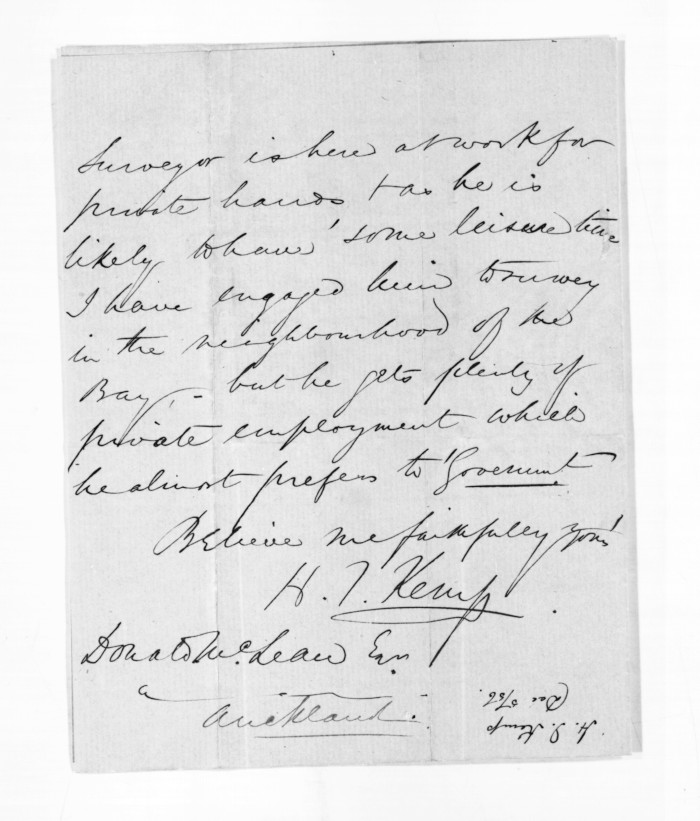 Surveyor is here at work for
private hands & as he is
likely to have some leisure time
I have engaged him to survey
in the neighbourhood of the
Bay, - but he gets plenty of
private employment which
he almost prefers to Goverment
Believe me faithfully yours
H. T. Kemp
Donald McLean Esq
Auckland.
H. T. Kemp
Dec 5/56